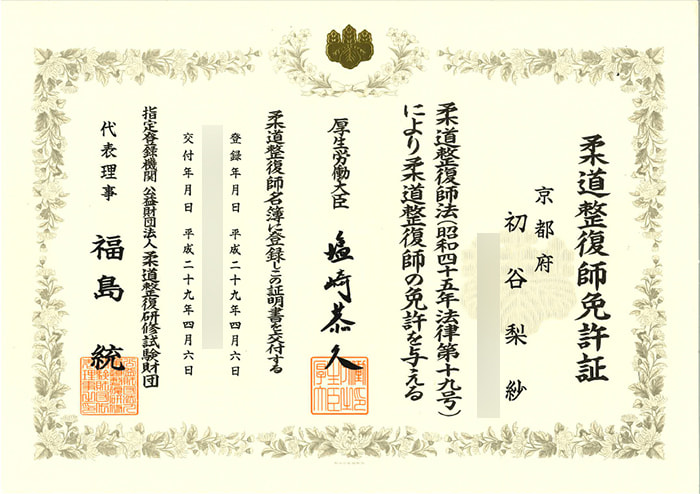 柔道整復師免許証
京都府
初谷梨紗
柔道整復師法(昭和四十五年法律第十九号)
により柔道整復師の免許を与える
厚生労働大臣 塩崎恭久
柔道整復師名簿に登録しこの証明書を交付する
登録年月日 平成二十九年四月六日
交付年月日 平成二十九年四月六日
指定登録機関 公益財団法人柔道整復研修試験財団
代表理事 福島統